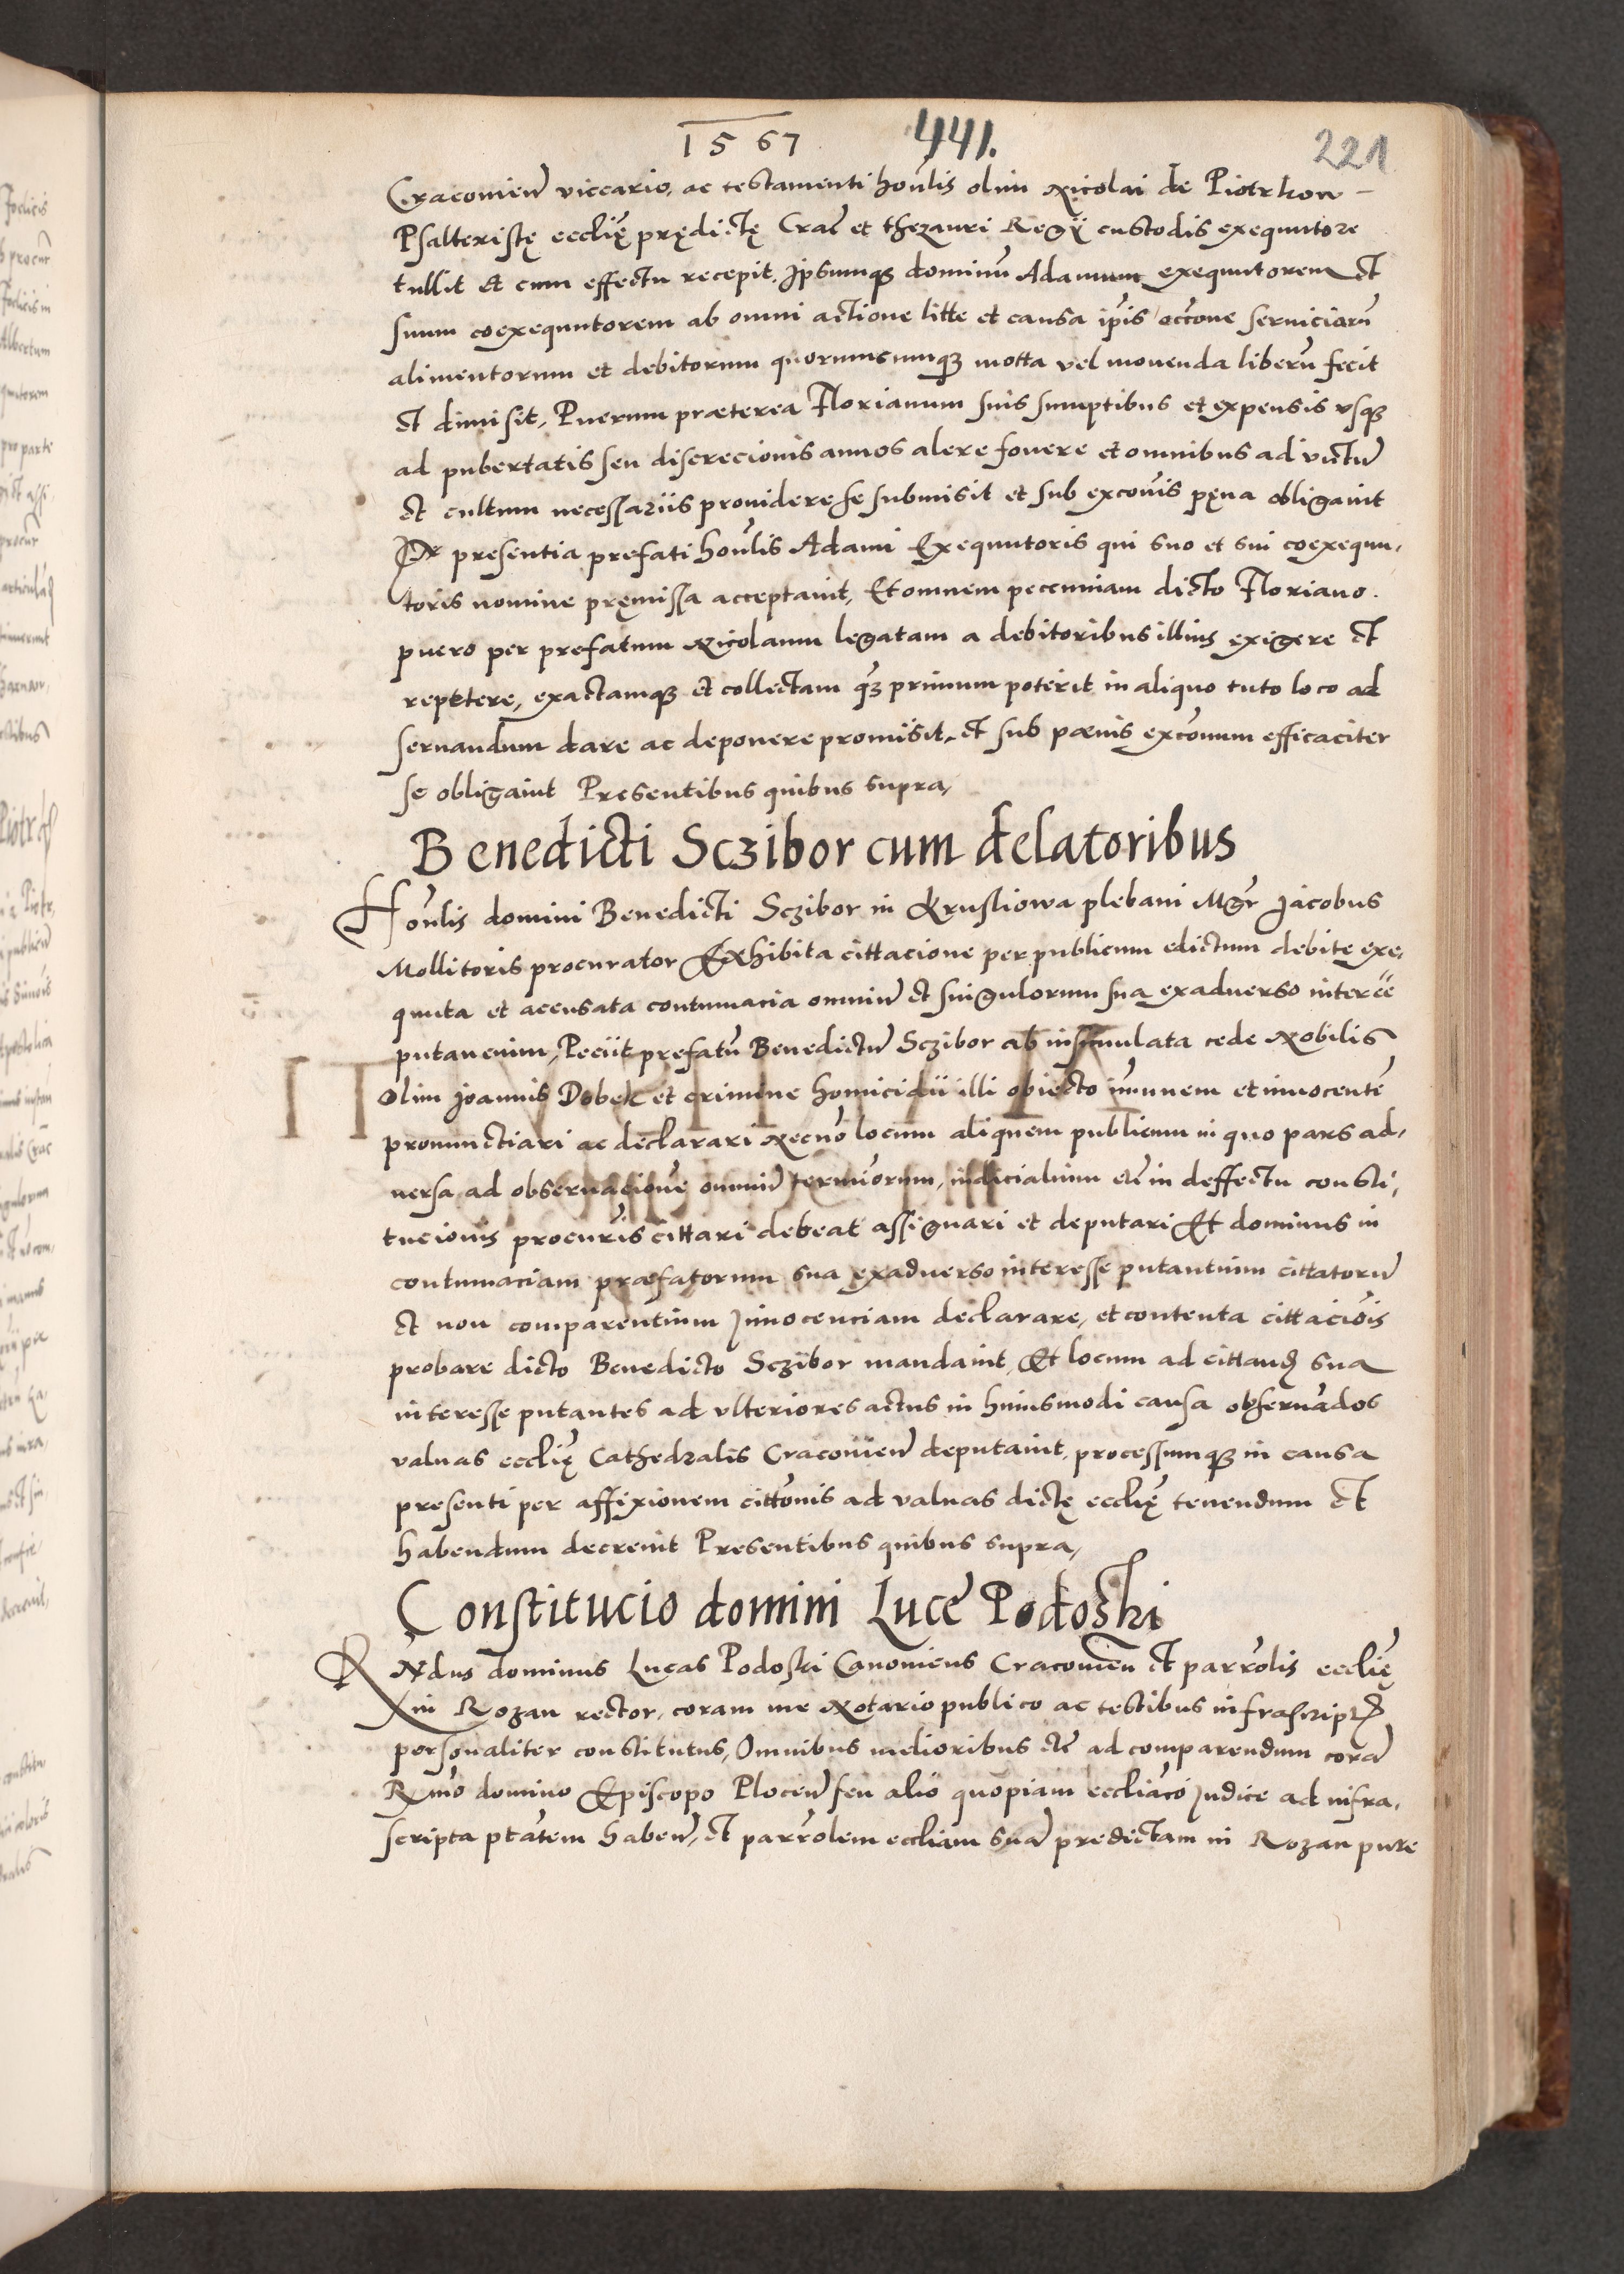 1567 441. 221
Craconien̄ viccario, ac testamenti hon̄lis olim Nicolai de Piotrkow –
Psalteristę eccl̄ię prędictę Crac̄ et thezauri Regÿ custodis exequutore
tullit et cum effectu recepit, Ipsumq3 dominū Adamum exequutorem et
suum coexequutorem ab omni actione litte et causa ip̄is occ̄one seruiciarū
alimentorum et debitorum quorumcumq3 motta vel mouenda liberū fecit
et dimisit, Puerum præterea Florianum suis sumptibus et expensis vsq3
ad pubertatis seu discrecionis annos alere fouere et omnibus ad victū
et cultum necessariis prouidere se submisit et sub exco̅nis pęna obligauit
In presentia prefati hon̄lis Adami Exequutoris qui suo et sui coexequu,
toris nomine pręmissa acceptauit, Et omnem pecunniam dicto Floriano.
puero per prefatum Nicolaum legatam a debitoribus illius exigere et
repetere, exactamq3 et collectam q̄3 primum poterit in aliquo tuto loco ad
seruandum dare ac deponere promisit, et sub pænis exco̅num efficaciter
se obligauit Presentibus quibus supra,
Benedicti Sczibor cum delatoribus
Hon̄lis domini Benedicti Sczibor in Krustiowa plebani Mgr̄ Jacobus
Mollitoris procurator Exhibita cittacione per publicum edictum debite exe,
quuta et accusata contumacia omniū et singulorum sua exaduerso interēē
putancium, Peciit prefatū Benedictū Sczibor ab insimulata cede Nobilis
olim Joannis Dobek et crimine homicidii illi obiecto im̄unem et innocentē
pronunctiari ac declarari Necnō locum aliquem publicum in quo pars ad,
uersa ad obseruacionē omniū termīorum, iudicialium etc̄ in deffectu consti,
tucionis procur̄is cittari debeat assignari et deputari Et dominus in
contumaciam præfatorum sua exaduerso interesse putantium cittatorū
et non comparentium Jnnocenciam declarare, et contenta cittaciōis
probare dicto Benedicto Sczibor mandauit, Et locum ad cittand̄ sua
interesse putantes ad vlteriores actus in huiusmodi causa obseruādos
valuas eccl̄ię Cathedralis Craconien̄ deputauit, processumq3 in causa
presenti per affixionem citto̅nis ad valuas dictę eccl̄ię tenendum et
habendum decreuit Presentibus quibus supra,
Constitucio domini Lucē Podoski
RNdus dominus Lucas Podoski Canonicus Craconien̄ et parro̅lis eccl̄ię
in Rozan rector, coram me Notario publico ac testibus infrascriptꝭ
personaliter constitutus, Omnibus melioribus etc̄ ad comparendum corā
Rmō domino Episcopo Plocen̄ seu alio quopiam eccl̄iac̄o Judice ad infra,
scripta ptātem haben̄, et parro̅lem eccl̄iam suā predictam in Rozan pure